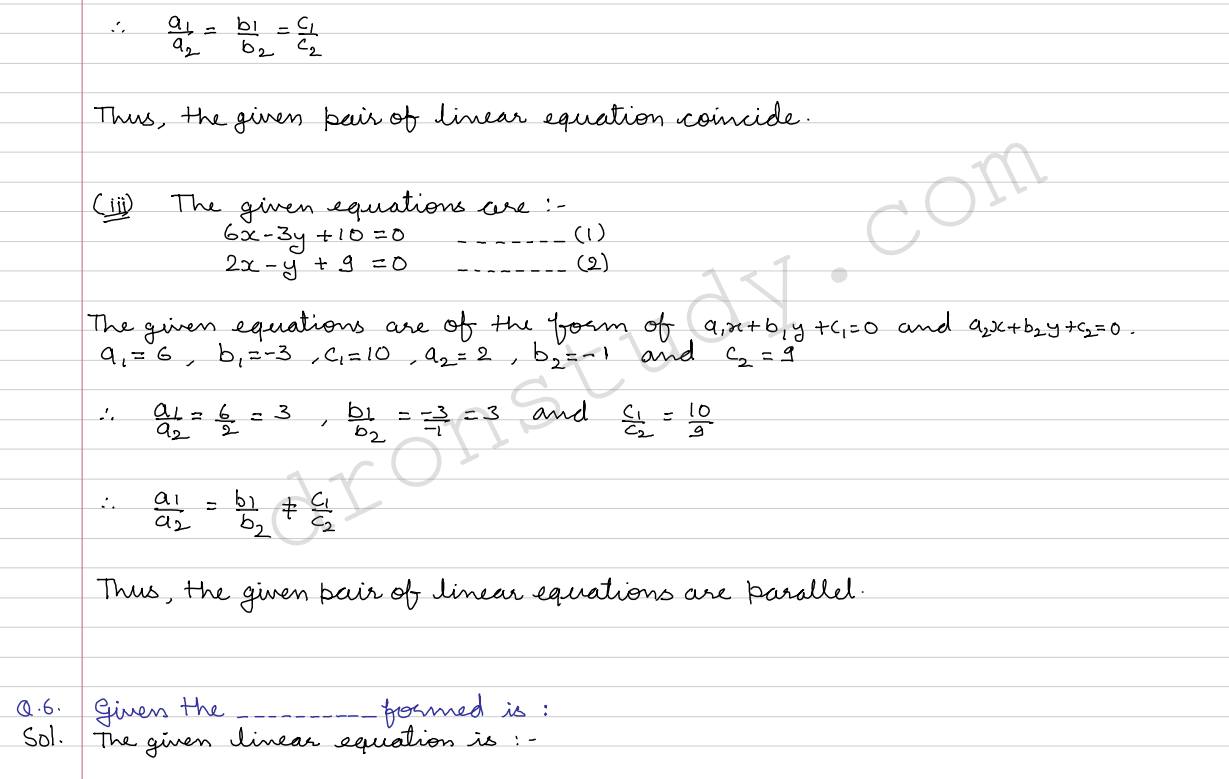 ∴ a₁/a₂ = b₁/b₂ = c₁/c₂
Thus, the given pair of linear equation coincide.
(iii) The given equations are :-
6x-3y+10=0 -------(1)
2x-y+9=0 --------(2)
The given equations are of the form of a₁x+b₁y+c₁=0 and a₂x+b₂y+c₂=0.
a₁=6, b₁=-3, c₁=10, a₂=2, b₂=-1 and c₂=9
∴ a₁/a₂ = 6/2 = 3, b₁/b₂ = -3/-1 = 3 and c₁/c₂ = 10/9
∴ a₁/a₂ = b₁/b₂ ≠ c₁/c₂
Thus, the given pair of linear equations are parallel.
Q.6. Given the ---------- formed is :
Sol. The given linear equation is :-
dronstudy.com